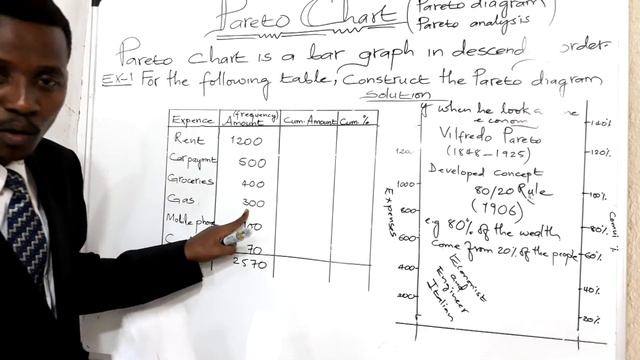 Pareto Chart (Pareto diagram
Pareto analysis
Pareto chart is a bar graph in descend order.
EX-1 For the following table, Construct the Pareto diagram
Solution
Expence (frequency) Amount Cum. Amount Cum %
Rent 1200
Car paymt 500
Groceries 400
Gas 300
Mobile phone
70
2570
when he look a
econom
Vilfredo Pareto
(1848-1925)
Developed concept
80/20 Rule
(1906)
e.g 80% of the wealth
come from 20% of the people
Economist
and
Engineer
Italian
Expenses
1000
800
600
400
200
140%
120%
100%
80%
60%
40%
20%